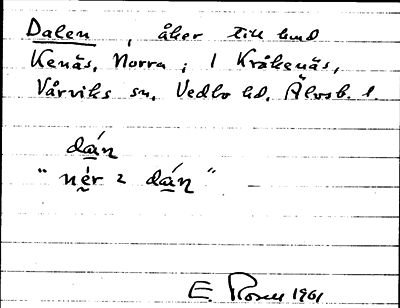 Dalen, åker till hmd
Kenäs, Norra; 1 Kråkenäs,
Vårviks sn, Vedbo hd, Älvsb. l.
dán
"nér 2 dán"
E. Rosell 1961